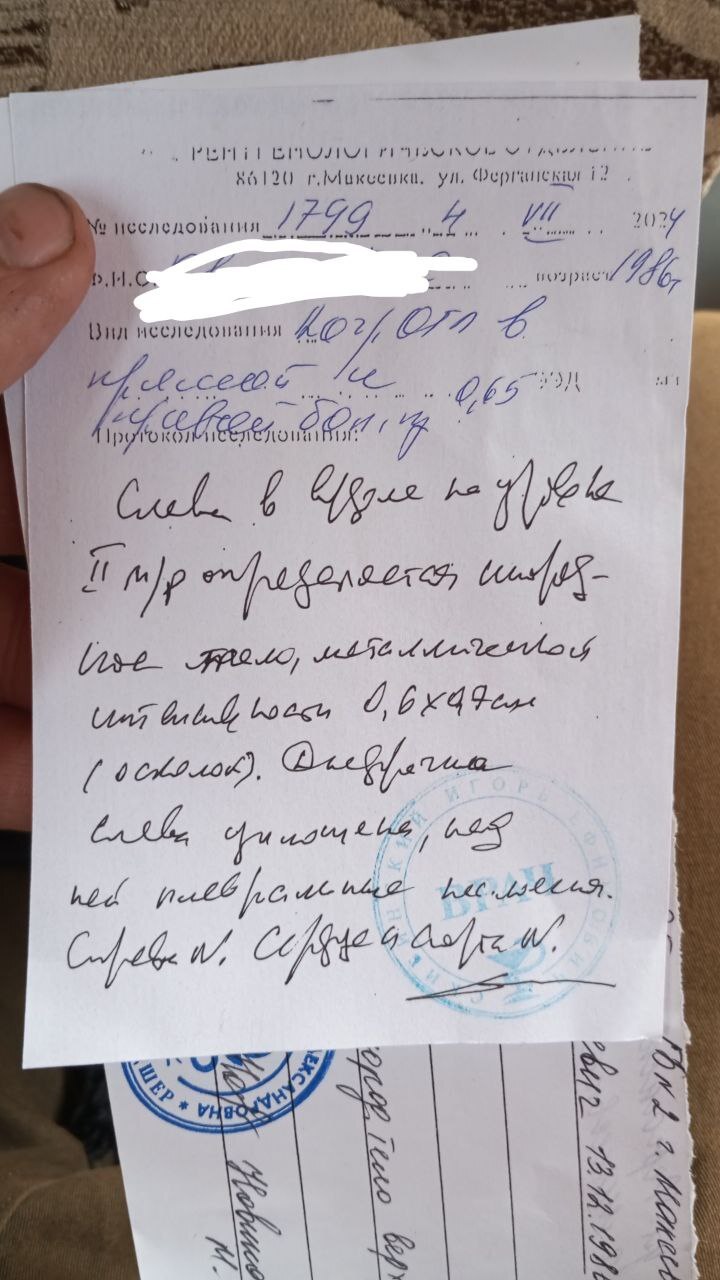 РЕНТГЕНОЛОГИЧЕСКОЕ ОТДЕЛЕНИЕ
86120 г.Макеевка, ул. Ферганская 12
№ исследования 1799 4 VII 2024
Ф.И.О возраст 1986г
Вид исследования ОГП в
прямой и
0,65
правой бок, пр
Протокол исследования:
Слева в на уровне
II м/р определяется инород-
ное тело, металлической
интенсивности 0,6х0,7см
(осколок). Диафрагма
слева уплощена, над
ней плевральные наслоения.
Справа N. Сердце и аорта N.
ВРАЧ
ИГОРЬ
ЛЕКСАНДРОВНА
ород тело
2 г.
13.12.198